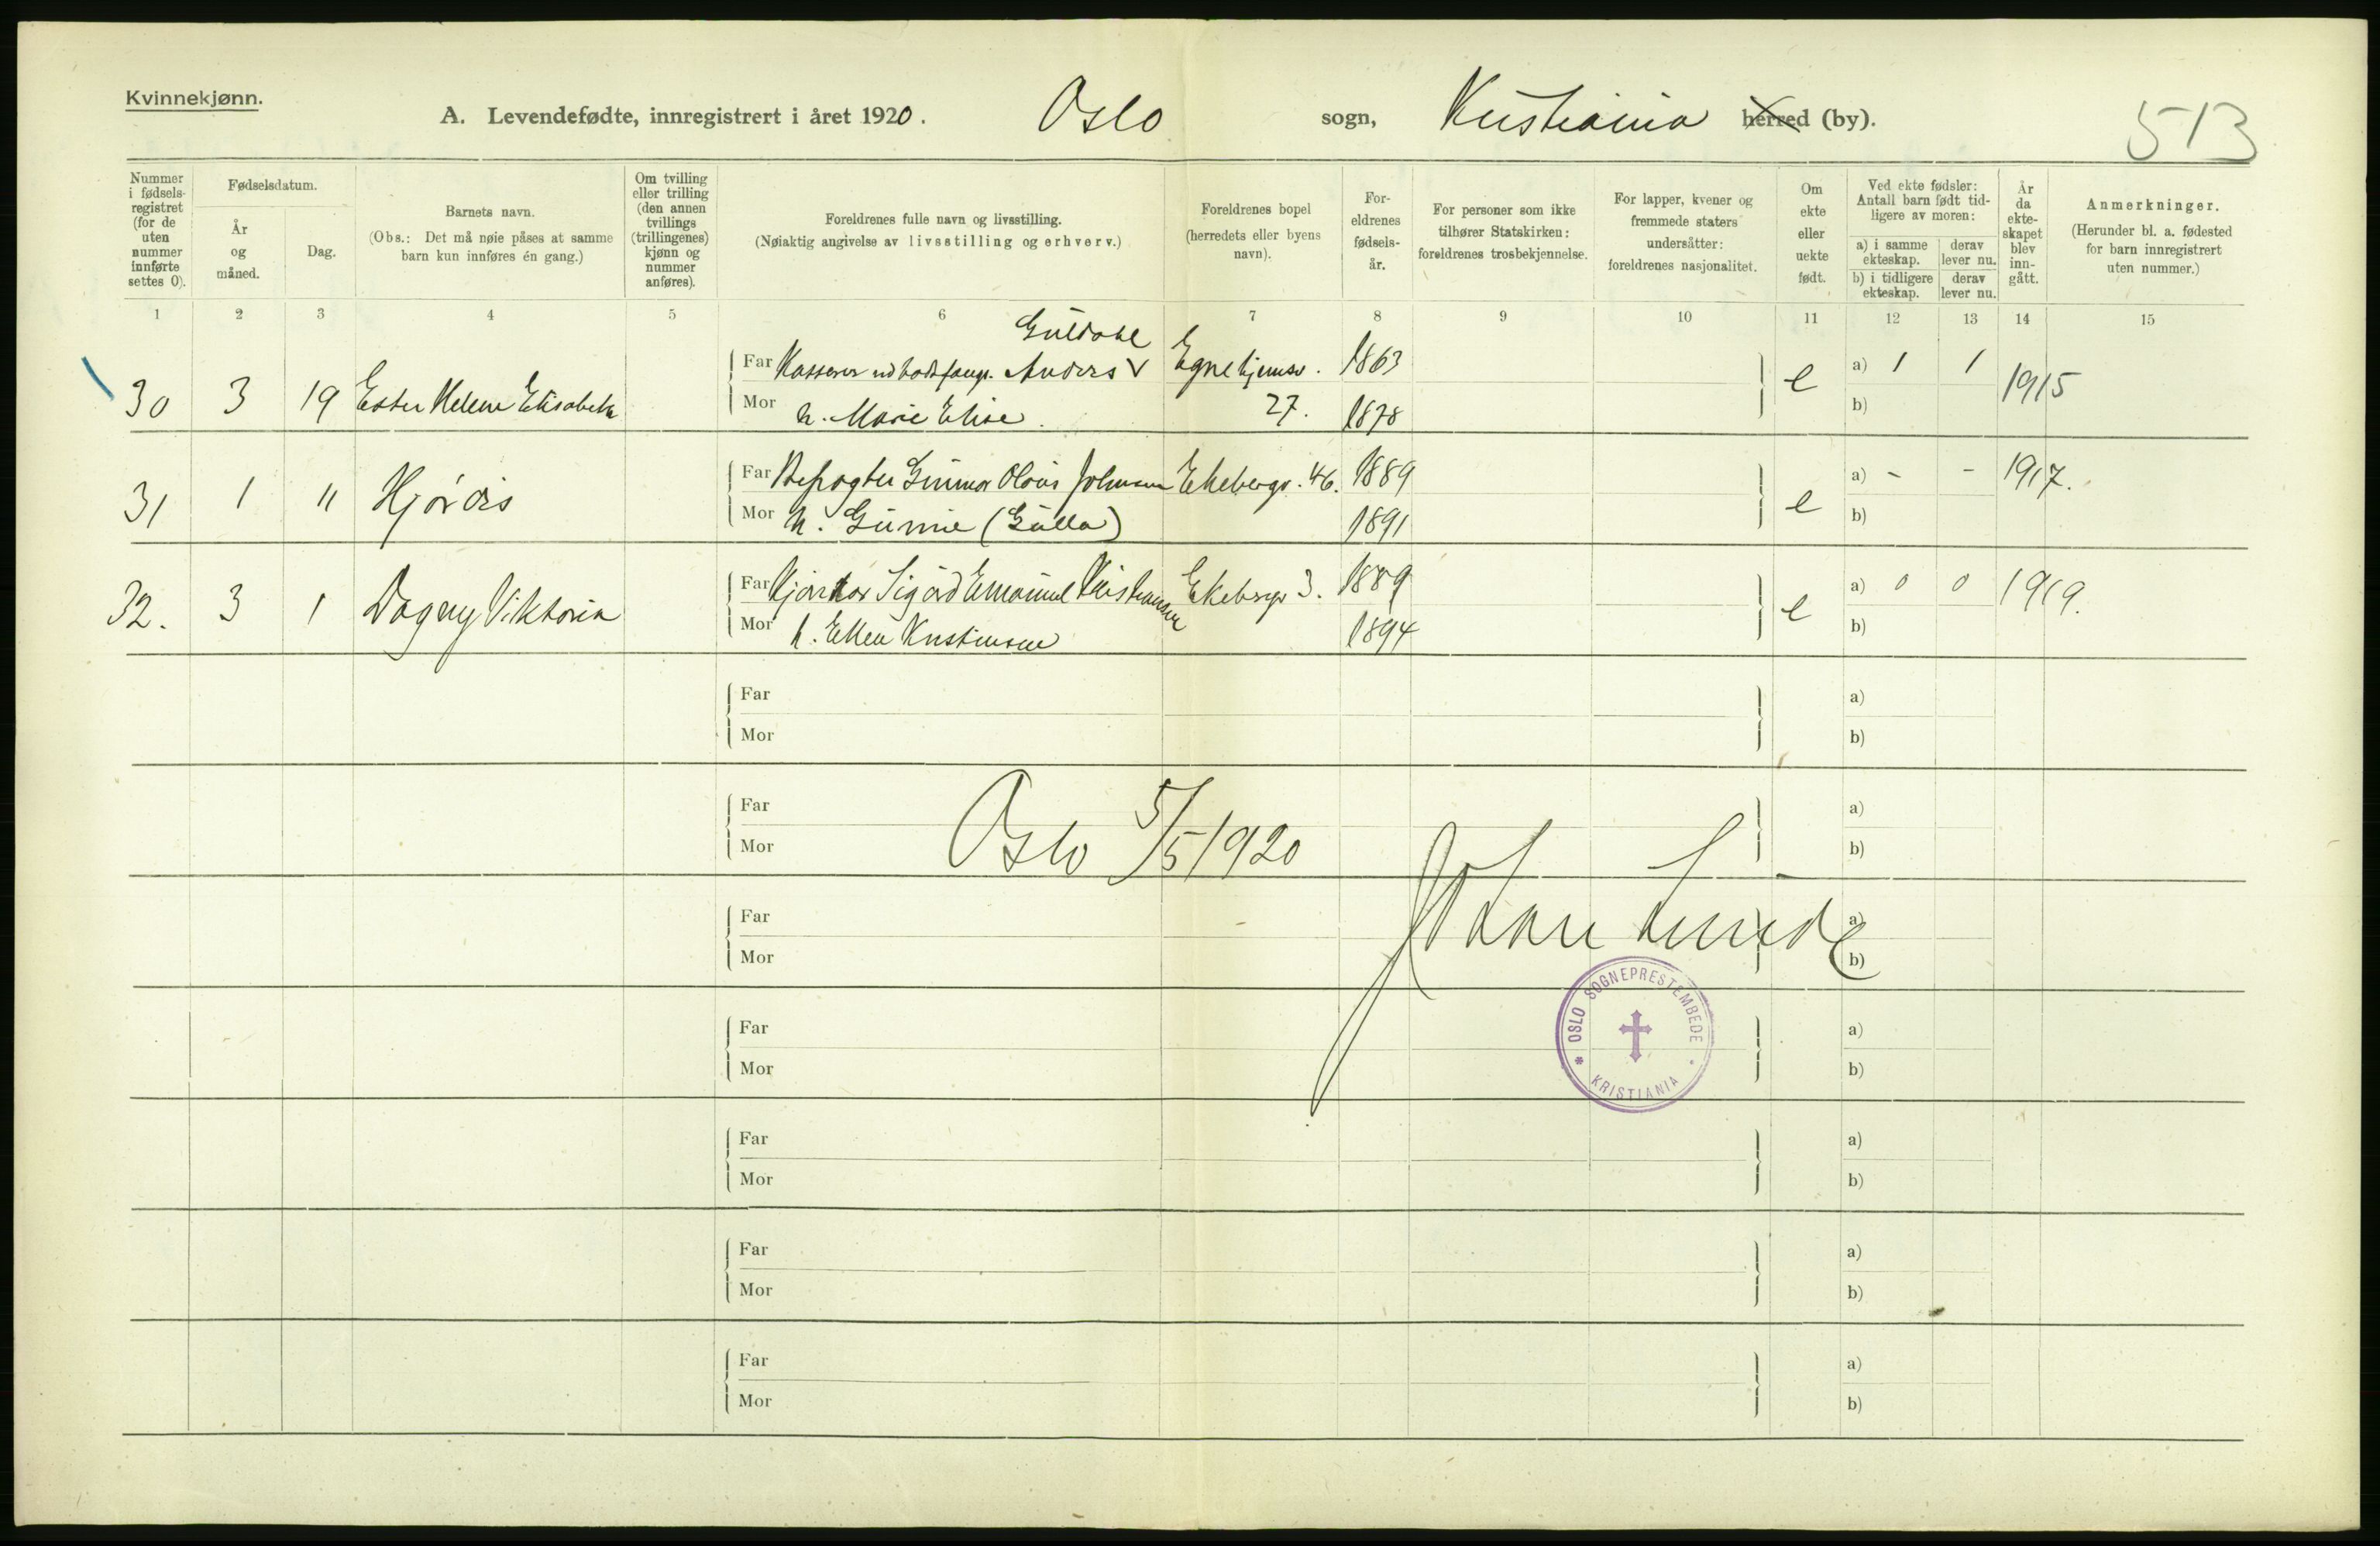 Kvinnekjønn.
A. Levendefødte, innregistrert i året 1920. Oslo sogn, Kristiania herred (by).
513
Nummer i fødselsregistret (for de uten nummer innførte settes 0).
Fødselsdatum.
År og måned.
Dag.
Barnets navn.
(Obs.: Det må nøie påses at samme barn kun innføres én gang.)
Om tvilling eller trilling (den annen tvillings (trillingenes) kjønn og nummer anføres).
Foreldrenes fulle navn og livsstilling.
(Nøiaktig angivelse av livsstilling og erhverv.)
Foreldrenes bopel (herredets eller byens navn).
Foreldrenes fødselsår.
For personer som ikke tilhører Statskirken: foreldrenes trosbekjennelse.
For lapper, kvener og fremmede staters undersåtter: foreldrenes nasjonalitet.
Om ekte eller uekte født.
Ved ekte fødsler: Antall barn født tidligere av moren:
a) i samme ekteskap.
derav lever nu.
b) i tidligere ekteskap.
derav lever nu.
År da ekteskapet blev inngått.
Anmerkninger.
(Herunder bl. a. fødested for barn innregistrert uten nummer.)
1 2 3 4 5 6 7 8 9 10 11 12 13 14 15
Guldahl
30 3 19 Ester Helene Elisabeth Far Kasserer Anders V Egnehjemsv. 1863 e a) 1 1 1915
Mor h. Marie Elise. 27. 1878 b)
31 1 11 Hjørdis Far Gunnar Olaus Johnsen Ekebergv. 46. 1889 e a) - - 1917.
Mor h. Gunnie (Gulla) 1891 b)
32. 3 1 Dagny Viktoria Far Sigurd Emanuel Kristiansen Ekebergv 3. 1889 e a) 0 0 1919.
Mor h. Ellen Kristensen 1894 b)
Far a)
Mor b)
Far a)
Oslo 5/5 1920
Mor b)
Far a)
Johan Lunde
Mor b)
OSLO SOGNEPRESTEMBEDE * KRISTIANIA
Far a)
Mor b)
Far a)
Mor b)
Far a)
Mor b)
Far a)
Mor b)